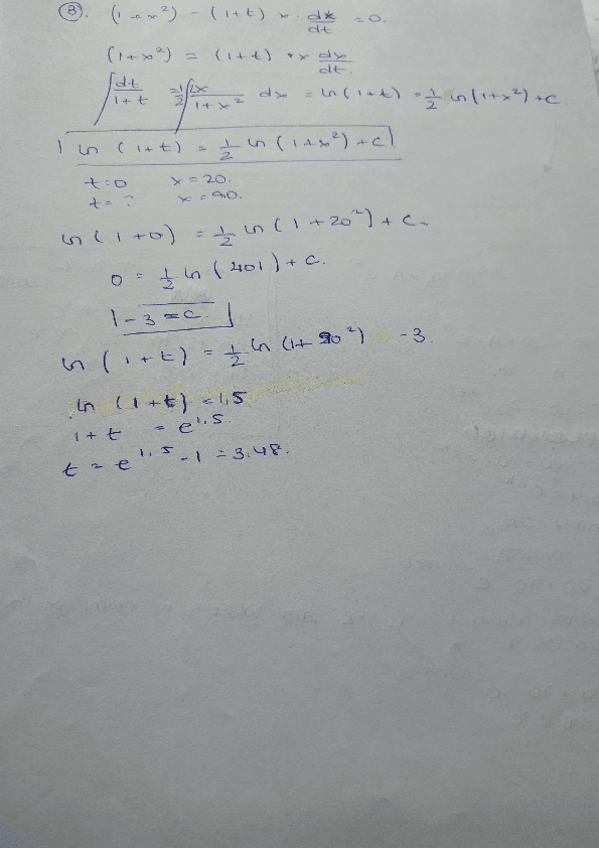 ③. (1+x²) - (1+t) x · dx/dt = 0.
(1+x²) = (1+t) · x dx/dt.
∫ dt/1+t = 1/2 ∫ 2x/1+x² dx = ln(1+t) = 1/2 ln(1+x²)+C
ln (1+t) = 1/2 ln (1+x²)+C
t=0 x=20.
t=? x=90.
ln(1+0) = 1/2 ln(1+20²)+C
0 = 1/2 ln(401)+C.
-3 = C.
ln(1+t) = 1/2 ln(1+90²) -3.
ln(1+t) = 1.5
1+t = e^1.5.
t = e^1.5 -1 = 3.48.